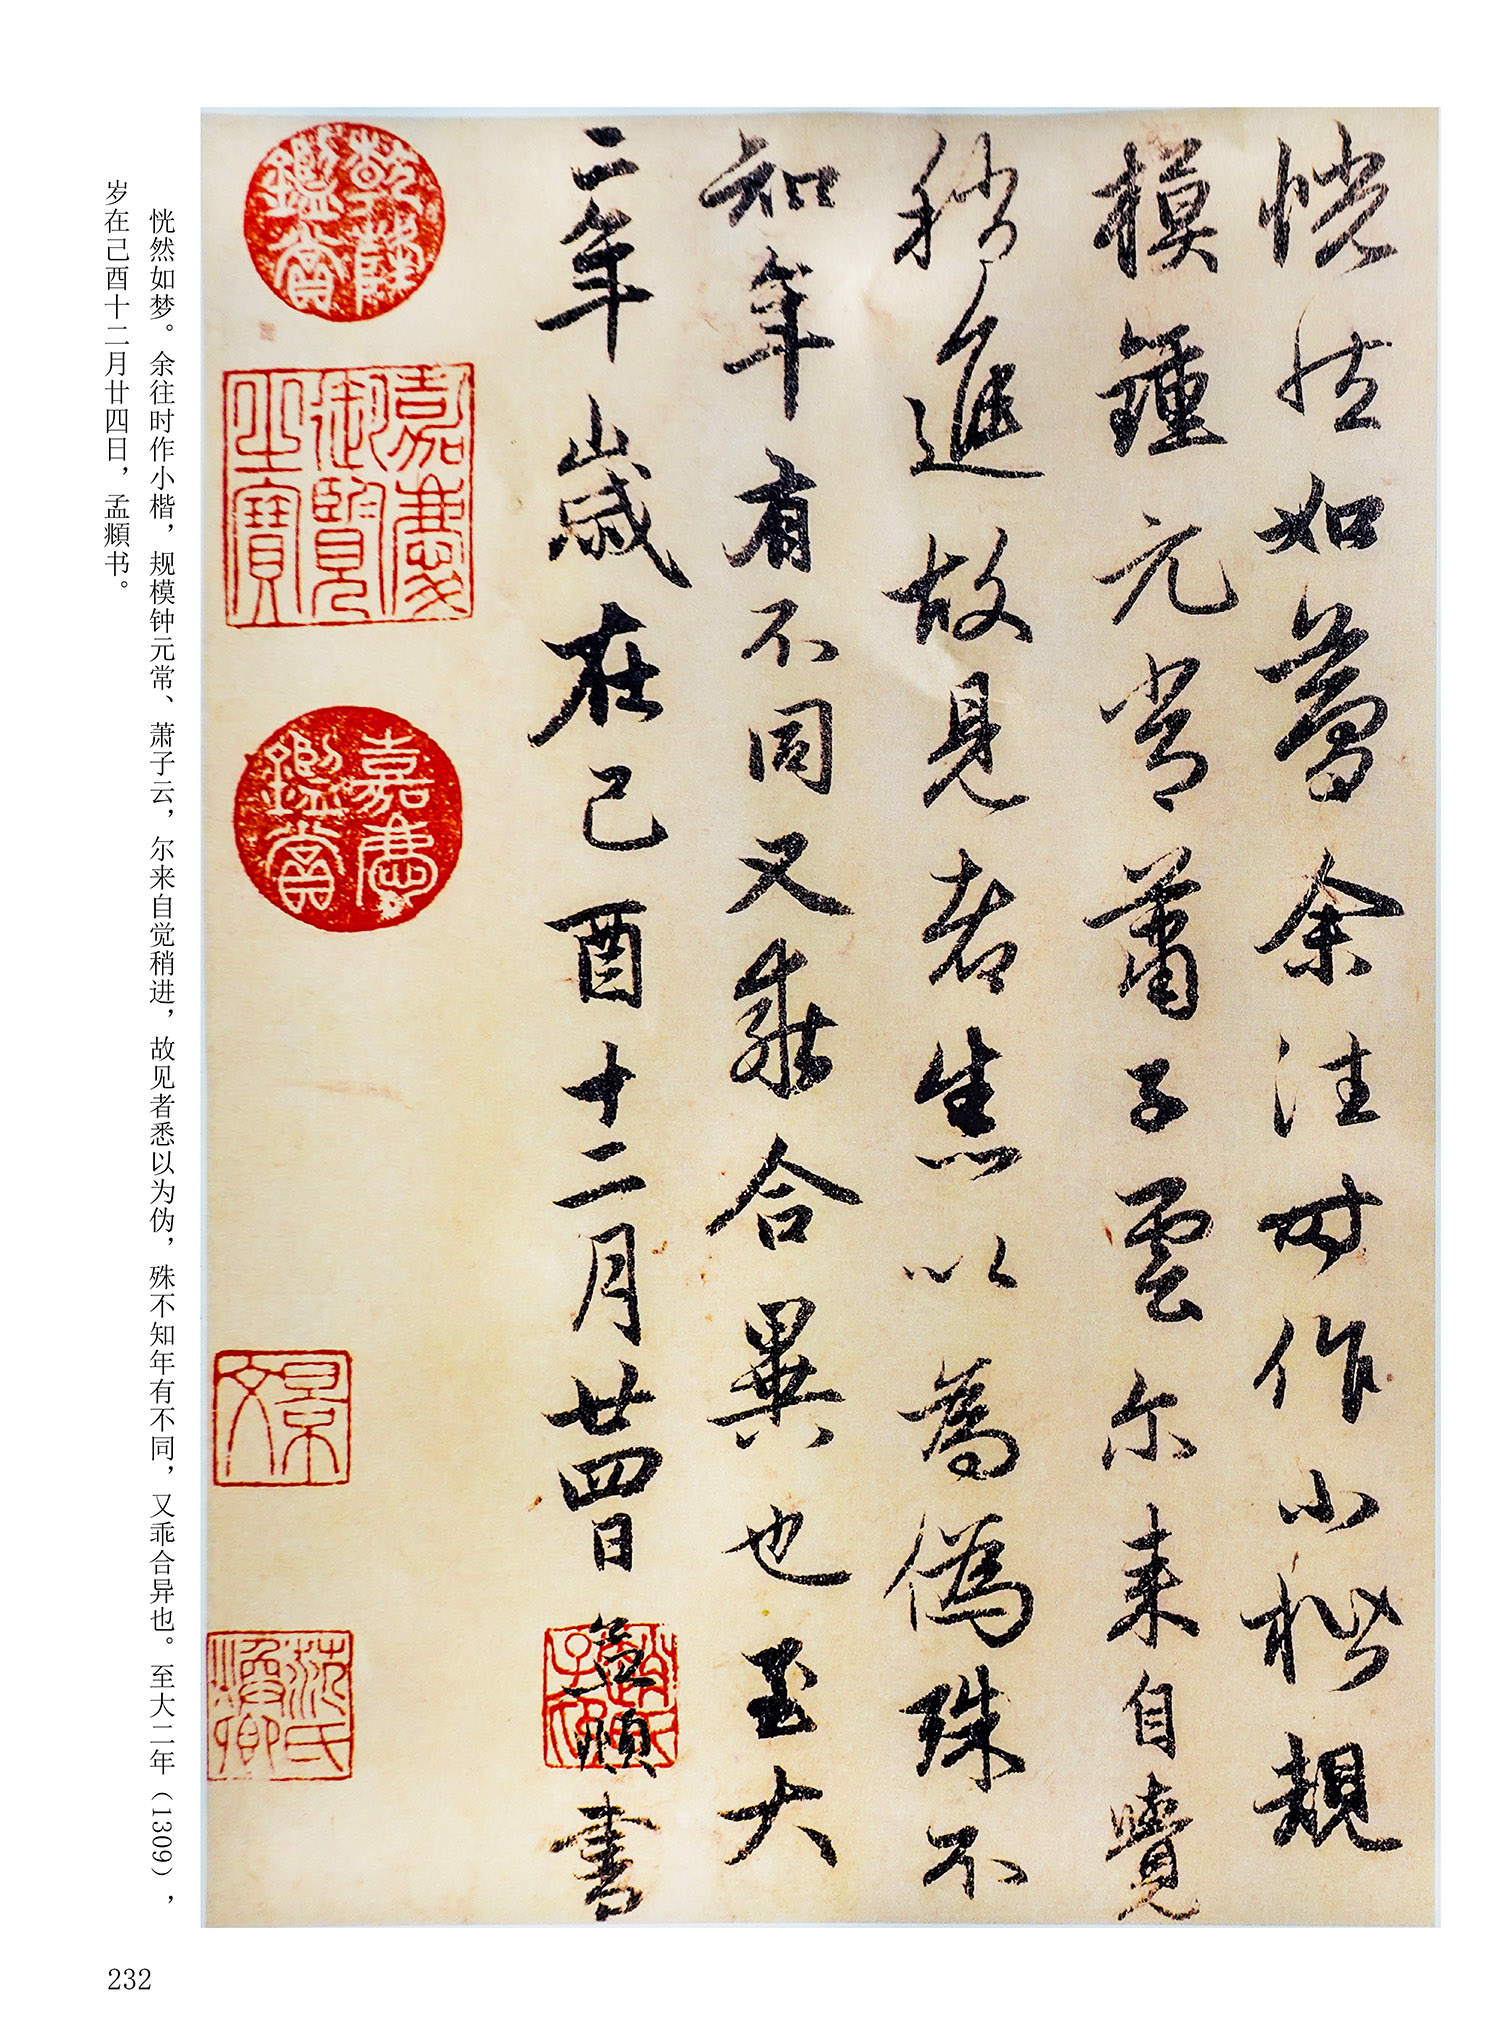 恍然如夢余往時作小楷規
模鍾元常蕭子雲尔来自覺
稍進故見者悉以為偽殊不
知年有不同又乖合異也至大
二年歲在己酉十二月廿四日孟頫書
趙氏子昂
乾隆鑑賞
嘉慶御覽之寶
嘉慶鑑賞
景文
恍然如梦。余往时作小楷，规模钟元常、萧子云，尔来自觉稍进，故见者悉以为伪，殊不知年有不同，又乖合异也。至大二年（1309），
岁在己酉十二月廿四日，孟頫书。
232